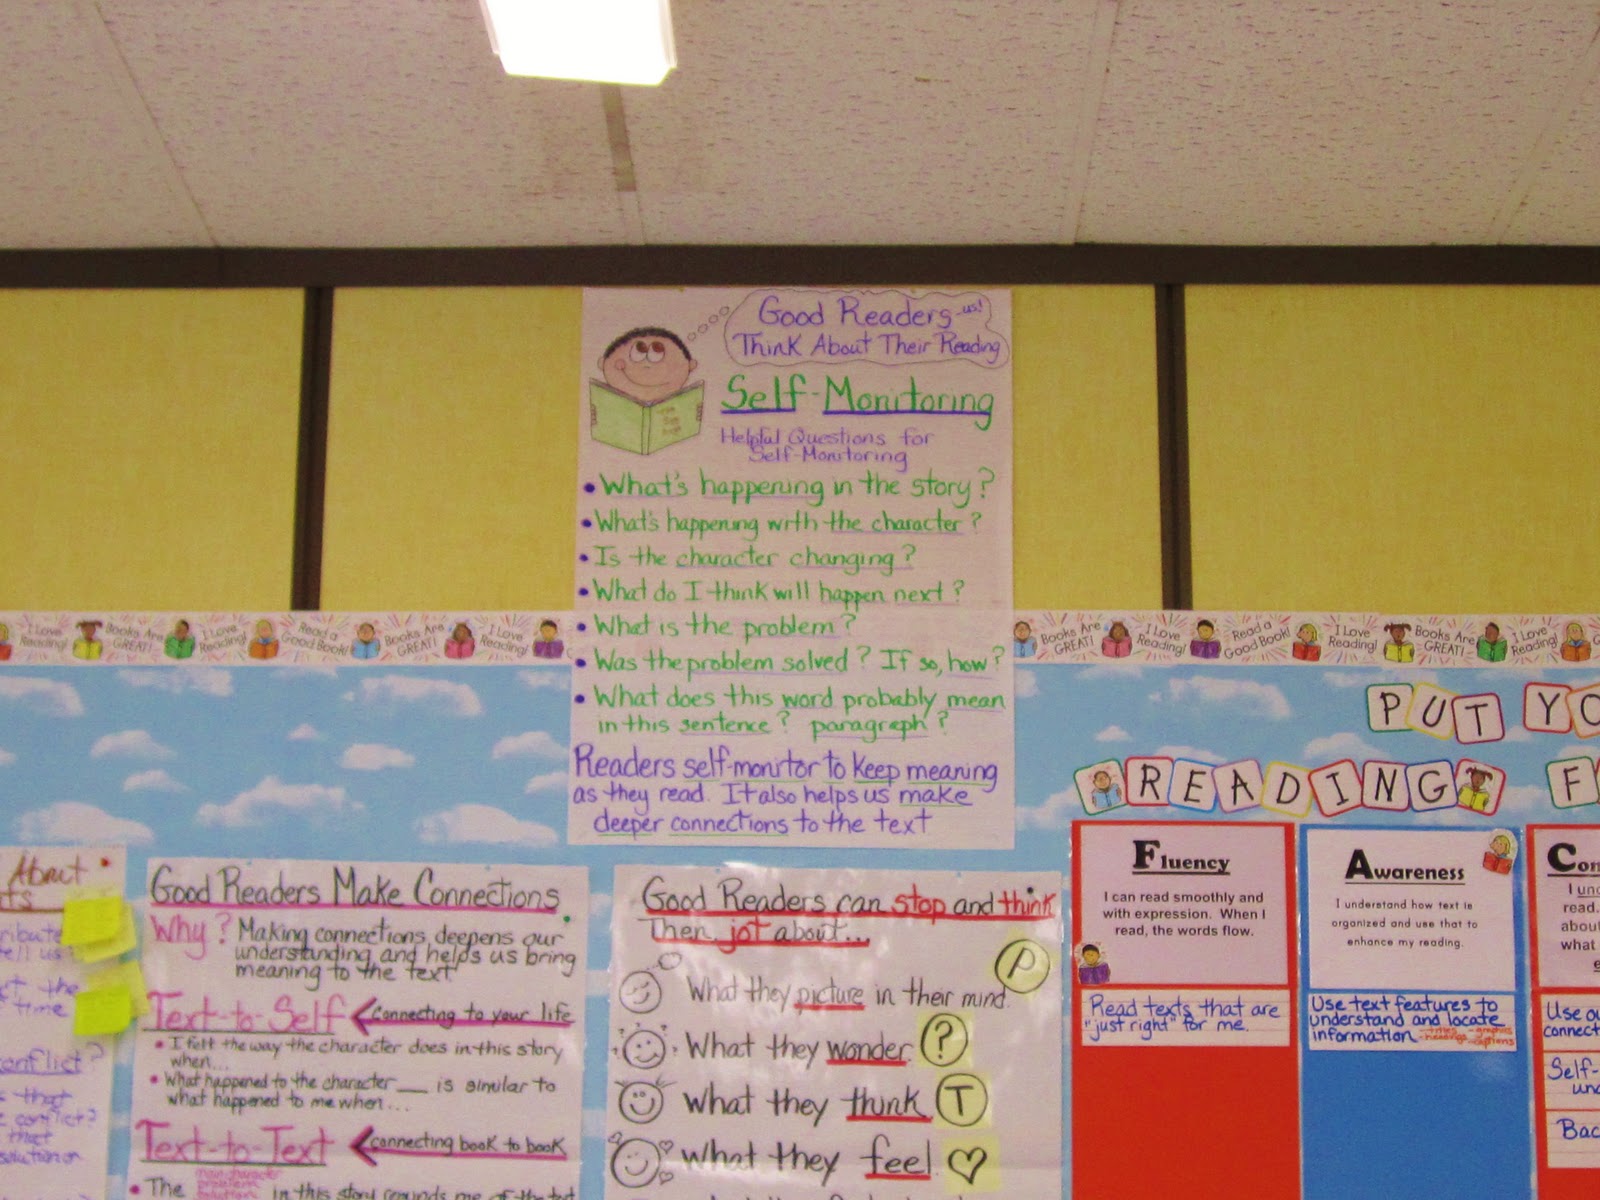 Good Readers -us!
Think About Their Reading
Self-Monitoring
Helpful Questions for
Self-Monitoring
• What's happening in the story?
• What's happening with the character?
• Is the character changing?
• What do I think will happen next?
• What is the problem?
• Was the problem solved? If so, how?
• What does this word probably mean
in this sentence? paragraph?
Readers self-monitor to keep meaning
as they read. It also helps us make
deeper connections to the text
I Love Reading!
Books Are GREAT!
I Love Reading!
Read a Good Book!
Books Are GREAT!
I Love Reading!
Books Are GREAT!
I Love Reading!
Read a Good Book!
I Love Reading!
Books Are GREAT!
I Love Reading!
PUT YO
READING F
About
conflict?
Good Readers Make Connections
Why? Making connections, deepens our
understanding, and helps us bring
meaning to the text
Text-to-Self connecting to your life
• I felt the way the character does in this story
when...
• What happened to the character __ is similar to
what happened to me when...
Text-to-Text connecting book to book
main character
problem
solution
• The in this story reminds me of the
Good Readers can stop and think
Then, jot about...
What they picture in their mind. P
What they wonder. ?
What they think T
What they feel.
Fluency
I can read smoothly and
with expression. When I
read, the words flow.
Read texts that are
"just right" for me.
Awareness
I understand how text is
organized and use that to
enhance my reading.
Use text features to
understand and locate
information -titles -graphics
-headings -captions
Co
I
read.
abou
what
Use
connect
Self-
Bac